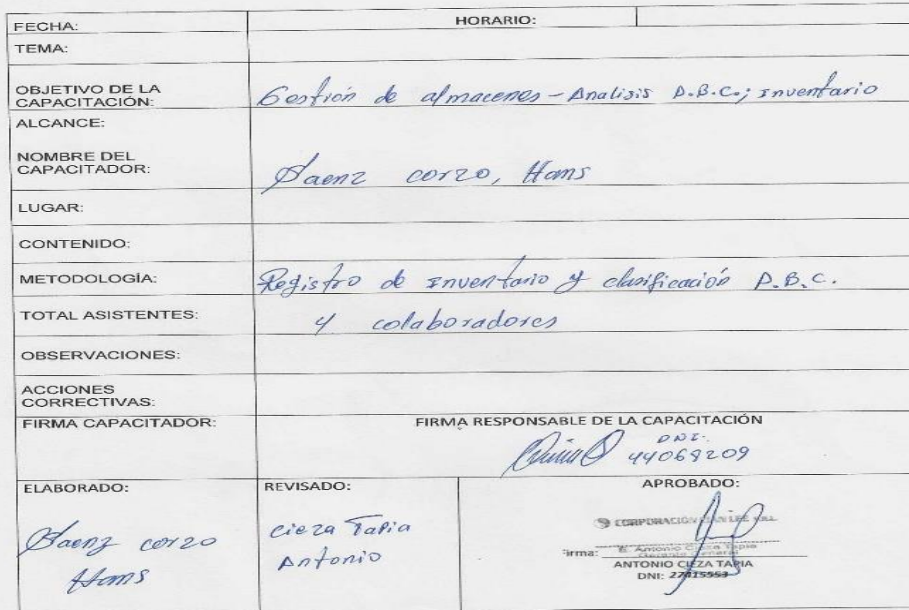 FECHA: HORARIO:
TEMA:
OBJETIVO DE LA
CAPACITACIÓN: Gestión de almacenes - Analisis A.B.C.; Inventario
ALCANCE:
NOMBRE DEL
CAPACITADOR: Saenz corzo, Hans
LUGAR:
CONTENIDO:
METODOLOGÍA: Registro de Inventario y clasificación A.B.C.
TOTAL ASISTENTES: 4 colaboradores
OBSERVACIONES:
ACCIONES
CORRECTIVAS:
FIRMA CAPACITADOR: FIRMA RESPONSABLE DE LA CAPACITACIÓN
DNI.
44068209
ELABORADO: REVISADO: APROBADO:
Saenz corzo
Hans
cieza Tapia
Antonio
CORPORACIÓN
Firma: E. Antonio Cieza Tapia
Gerente General
ANTONIO CIEZA TAPIA
DNI: 27415553